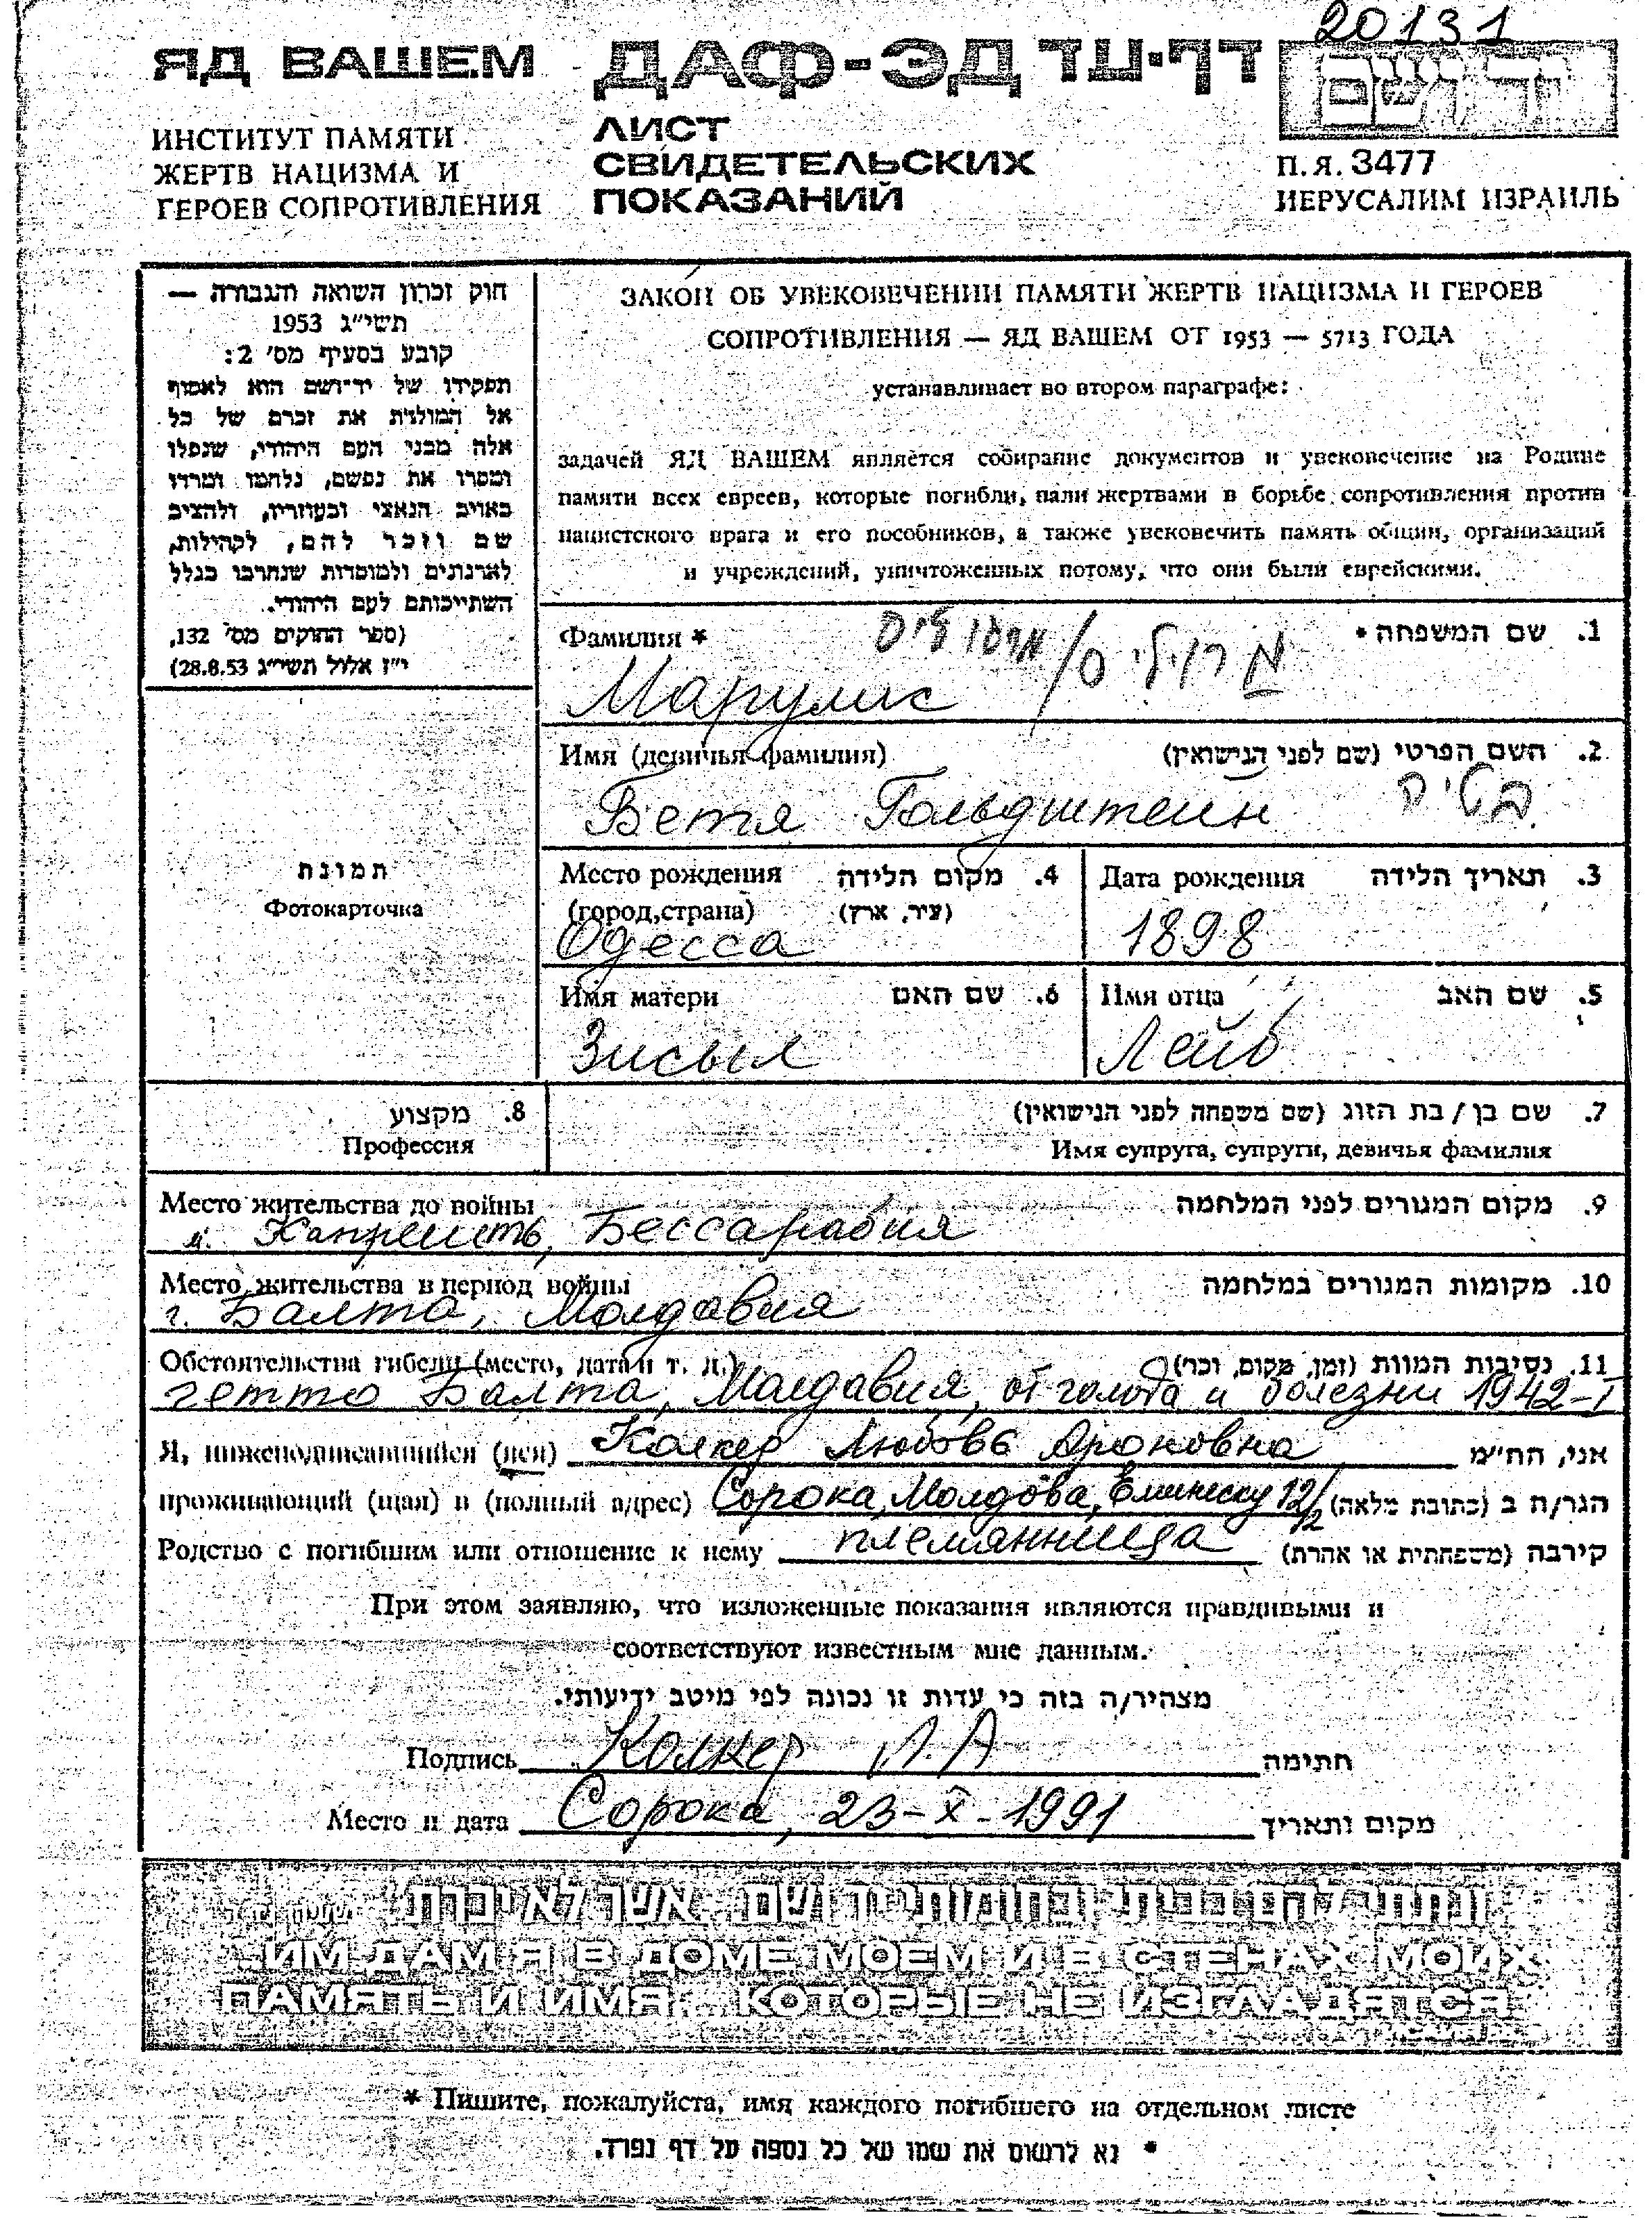 20131
ЯД ВАШЕМ ДАФ-ЭД דף-עד
יד ושם
ИНСТИТУТ ПАМЯТИ
ЖЕРТВ НАЦИЗМА И
ГЕРОЕВ СОПРОТИВЛЕНИЯ
ЛИСТ
СВИДЕТЕЛЬСКИХ
ПОКАЗАНИЙ
П.Я. 3477
ИЕРУСАЛИМ ИЗРАИЛЬ
חוק זכרון השואה והגבורה —
תשי"ג 1953
קובע בסעיף מס' 2:
תפקידו של יד-ושם הוא לאסוף
אל המולדת את זכרם של כל
אלה מבני העם היהודי, שנפלו
ומסרו את נפשם, נלחמו ומרדו
באויב הנאצי ובעוזריו, ולהציב
שם וזכר להם, לקהילות,
לארגונים ולמוסדות שנחרבו בגלל
השתייכותם לעם היהודי.
(ספר החוקים מס' 132,
י"ז אלול תשי"ג 28.8.53)
ЗАКОН ОБ УВЕКОВЕЧЕНИИ ПАМЯТИ ЖЕРТВ НАЦИЗМА И ГЕРОЕВ
СОПРОТИВЛЕНИЯ — ЯД ВАШЕМ ОТ 1953 — 5713 ГОДА
устанавливает во втором параграфе:
задачей ЯД ВАШЕМ является собирание документов и увековечение на Родине
памяти всех евреев, которые погибли, пали жертвами в борьбе сопротивления против
нацистского врага и его пособников, а также увековечить память общин, организаций
и учреждений, уничтоженных потому, что они были еврейскими.
Фамилия * 1. שם המשפחה *
Марулис מרוליס /
Имя (девичья фамилия) 2. השם הפרטי (שם לפני הנישואין)
Бетя Гольдштейн בטיה
Место рождения 4. מקום הלידה
(город,страна) (עיר, ארץ)
Одесса
Дата рождения 3. תאריך הלידה
1898
Имя матери 6. שם האם
Зисыл
Имя отца 5. שם האב
Лейб
תמונת
Фотокарточка
8. מקצוע
Профессия
7. שם בן / בת הזוג (שם משפחה לפני הנישואין)
Имя супруга, супруги, девичья фамилия
Место жительства до войны 9. מקום המגורים לפני המלחמה
м. Капрешть, Бессарабия
Место жительства в период войны 10. מקומות המגורים במלחמה
г. Балта, Молдавия
Обстоятельства гибели (место, дата и т. д.) 11. נסיבות המוות (זמן, מקום, וכו')
гетто Балта, Молдавия, от голода и болезни 1942-I
Я, нижеподписавшийся (аяся) Колкер Любовь Ароновна אני, הח"מ
проживающий (щая) в (полный адрес) Сорока, Молдова, Еминеску 12/2 הגר/ה ב (כתובת מלאה)
Родство с погибшим или отношение к нему племянница קירבה (משפחתית או אחרת)
При этом заявляю, что изложенные показания являются правдивыми и
соответствуют известным мне данным.
מצהיר/ה בזה כי עדות זו נכונה לפי מיטב ידיעותי.
Подпись Колкер Л.А חתימה
Место и дата Сорока, 23-X-1991 מקום ותאריך
ונתתי להם בביתי ובחומותי יד ושם... אשר לא יכרת
ИМ ДАМ Я В ДОМЕ МОЕМ И В СТЕНАХ МОИХ
ПАМЯТЬ И ИМЯ... КОТОРЫЕ НЕ ИЗГЛАДЯТСЯ
* Пишите, пожалуйста, имя каждого погибшего на отдельном листе
* נא לרשום את שמו של כל נספה על דף נפרד.